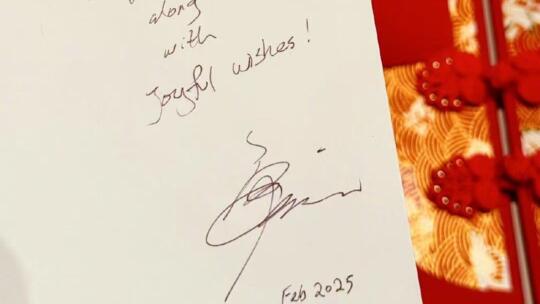 along
with
Joyful wishes!
Feb 2025